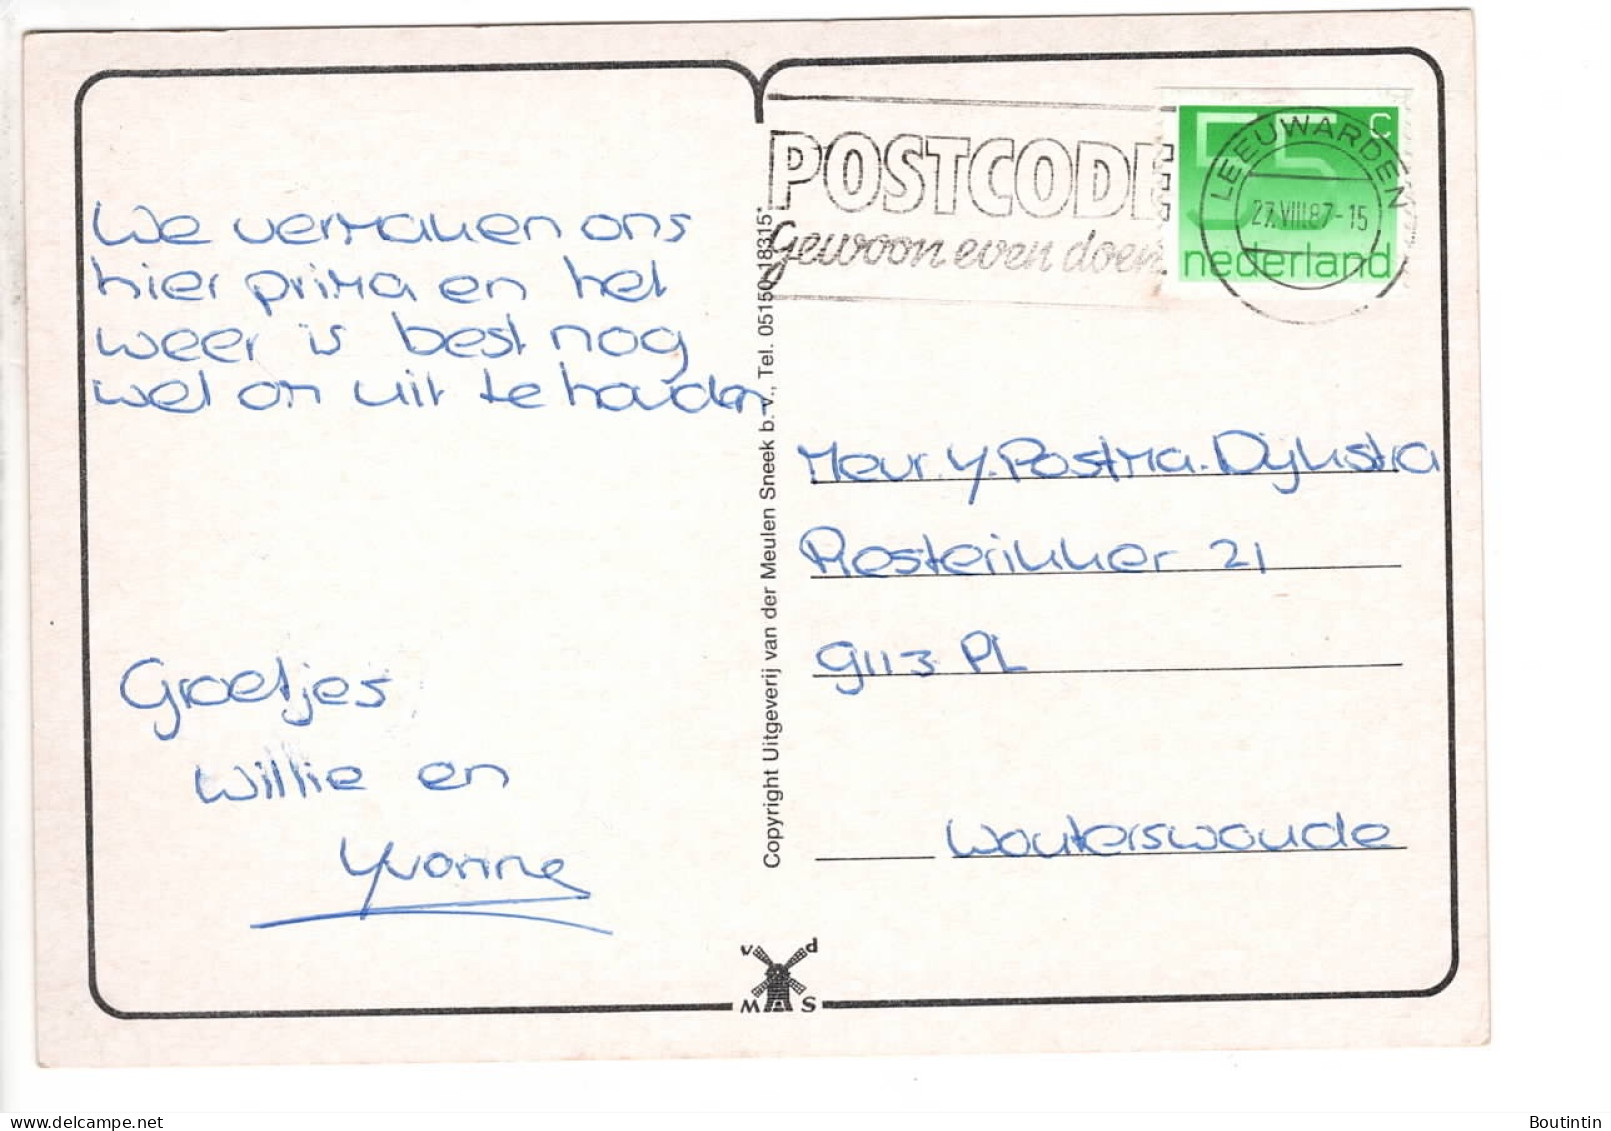 We vermaken ons
hier prima en het
weer is best nog
wel om uit te houden
Groetjes
Willie en
Yvonne
POSTCODE
gewoon even doen
55 c
nederland
LEEUWARDEN
27.VIII.87-15
Copyright Uitgeverij van der Meulen Sneek b.v., Tel. 05150-18315*
Mevr. Y. Postma-Dijkstra
Resterikker 21
9113 PL
Wouterswoude
v d
M S
Boutintin